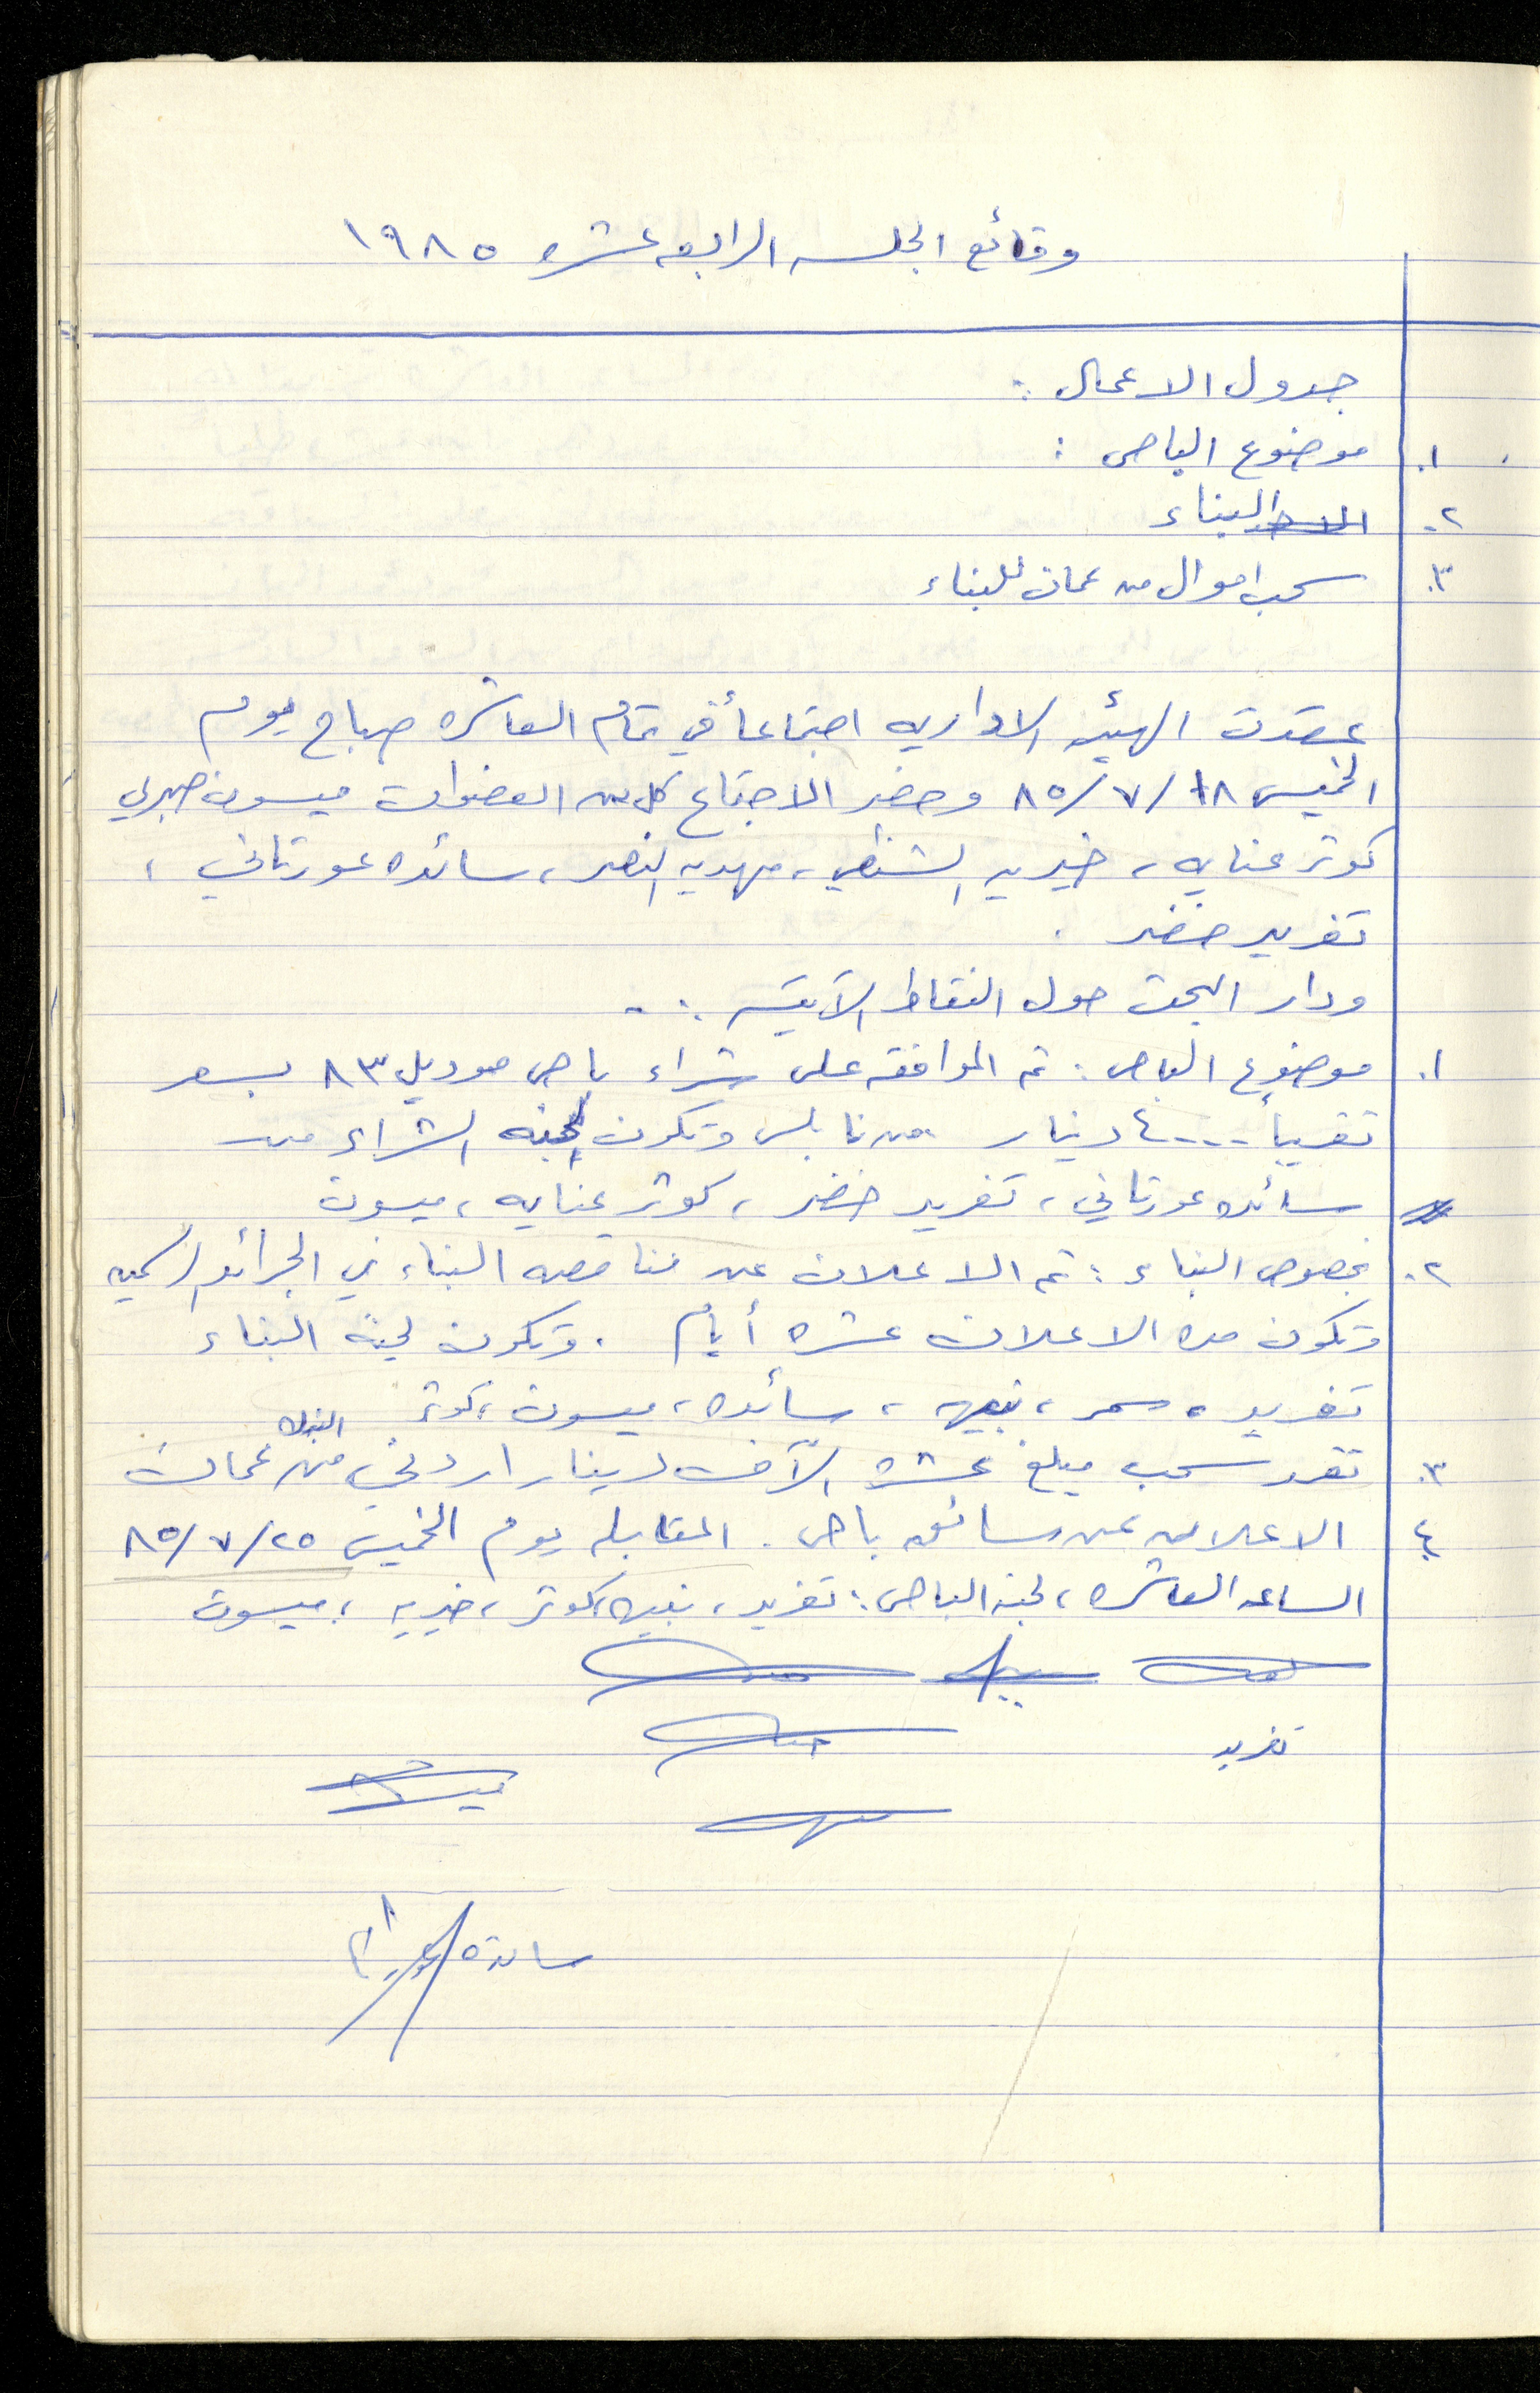 وقائع الجلسه الرابعه عشره ١٩٨٥
جدول الاعمال :
١. موضوع الباص :
٢. البناء
٣. سحب اموال من عمان للبناء
عقدت الهيئه الاداريه اجتماعاً في تمام العاشره صباح يوم
الخميس ١٨/٧/٨٥ وحضر الاجتماع كل من العضوات ميسون صبري
كوثر عنايه، خيريه الشنطي، مهديه النصر، سائده عورتاني،
تغريد خضر .
ودار البحث حول النقاط الآتيه :-
١. موضوع الباص : تم الموافقه على شراء باص موديل ٨٣ بسعر
تقريباً ٤٠٠٠ دينار من نابلس وتكون لجنه الشراء من
سائده عورتاني، تغريد خضر، كوثر عنايه، ميسون
٢. بخصوص البناء : تم الاعلان عن مناقصه البناء في الجرائد الرسميه
وتكون مده الاعلان عشره أيام . وتكون لجنه البناء
تغريد، سمر، نبيهه، سائده، ميسون، كوثر
٣. تقرر سحب مبلغ عشره الآف دينار اردني من البنوك عمان
٤. الاعلان عن سائق باص . المقابله يوم الخميس ٢٥/٧/٨٥
الساعه العاشره، لجنه الباص : تغريد، نبيهه، كوثر، خيريه، ميسون
تغريد
سائدة